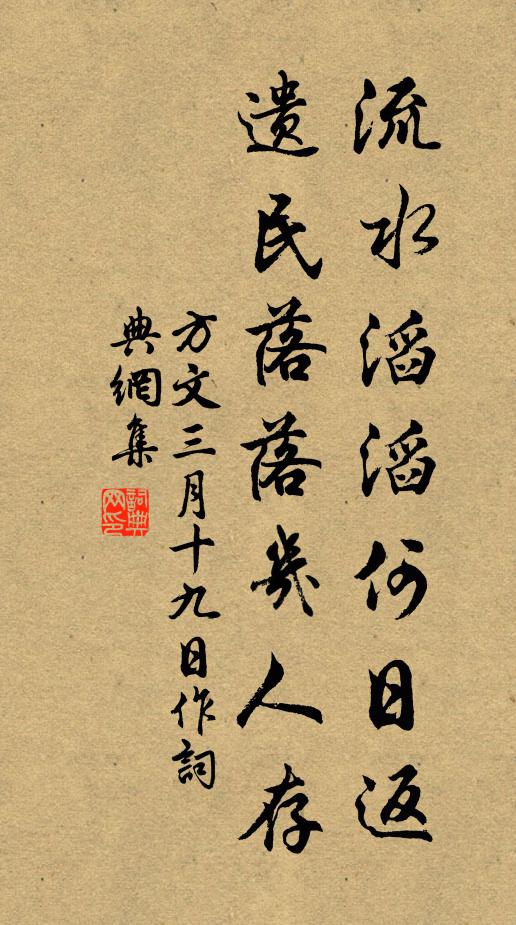 流水滔滔何日返
遗民落落幾人存
方文三月十九日作詞
典網集
詞典网印